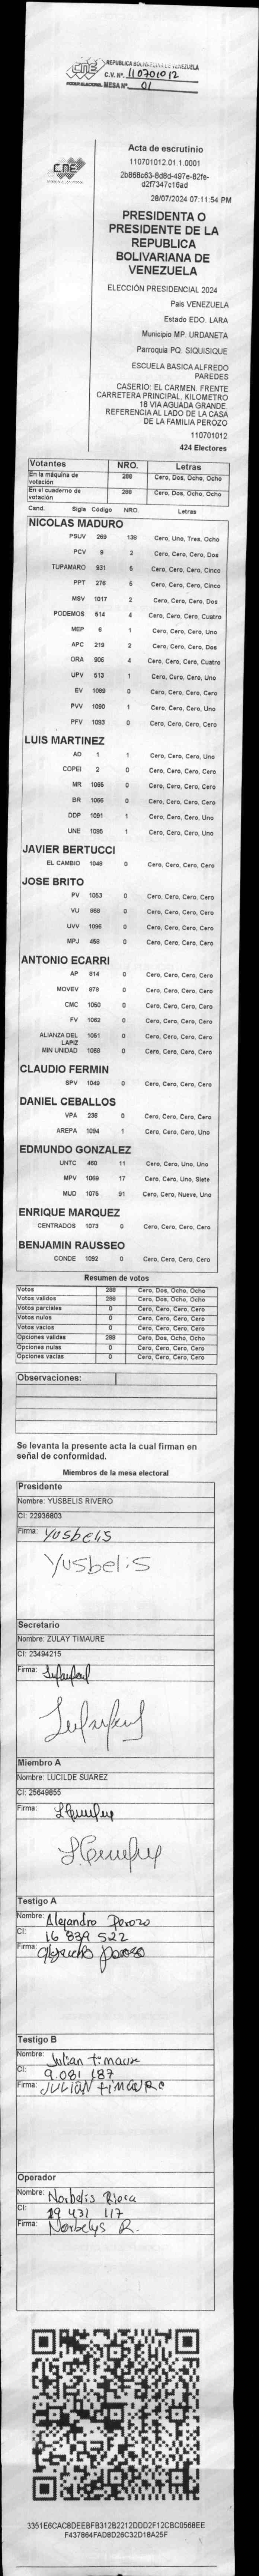 CNE
REPUBLICA BOLIVARIANA DE VENEZUELA
C.V. Nº. 110701012
PODER ELECTORAL MESA Nº 01
CNE
Acta de escrutinio
110701012.01.1.0001
2b868c63-8d8d-497e-82fe-
d2f7347c16ad
28/07/2024 07:11:54 PM
PRESIDENTA O
PRESIDENTE DE LA
REPUBLICA
BOLIVARIANA DE
VENEZUELA
ELECCIÓN PRESIDENCIAL 2024
Pais VENEZUELA
Estado EDO. LARA
Municipio MP. URDANETA
Parroquia PQ. SIQUISIQUE
ESCUELA BASICA ALFREDO
PAREDES
CASERIO: EL CARMEN. FRENTE
CARRETERA PRINCIPAL. KILOMETRO
18 VIA AGUADA GRANDE
REFERENCIA AL LADO DE LA CASA
DE LA FAMILIA PEROZO
110701012
424 Electores
Votantes NRO. Letras
En la máquina de votación 288 Cero, Dos, Ocho, Ocho
En el cuaderno de votación 288 Cero, Dos, Ocho, Ocho
Cand. Sigla Código NRO. Letras
NICOLAS MADURO
PSUV 269 138 Cero, Uno, Tres, Ocho
PCV 9 2 Cero, Cero, Cero, Dos
TUPAMARO 931 5 Cero, Cero, Cero, Cinco
PPT 276 5 Cero, Cero, Cero, Cinco
MSV 1017 2 Cero, Cero, Cero, Dos
PODEMOS 514 4 Cero, Cero, Cero, Cuatro
MEP 6 1 Cero, Cero, Cero, Uno
APC 219 2 Cero, Cero, Cero, Dos
ORA 906 4 Cero, Cero, Cero, Cuatro
UPV 513 1 Cero, Cero, Cero, Uno
EV 1089 0 Cero, Cero, Cero, Cero
PVV 1090 1 Cero, Cero, Cero, Uno
PFV 1093 0 Cero, Cero, Cero, Cero
LUIS MARTINEZ
AD 1 1 Cero, Cero, Cero, Uno
COPEI 2 0 Cero, Cero, Cero, Cero
MR 1055 0 Cero, Cero, Cero, Cero
BR 1066 0 Cero, Cero, Cero, Cero
DDP 1091 1 Cero, Cero, Cero, Uno
UNE 1095 1 Cero, Cero, Cero, Uno
JAVIER BERTUCCI
EL CAMBIO 1048 0 Cero, Cero, Cero, Cero
JOSE BRITO
PV 1053 0 Cero, Cero, Cero, Cero
VU 868 0 Cero, Cero, Cero, Cero
UVV 1096 0 Cero, Cero, Cero, Cero
MPJ 458 0 Cero, Cero, Cero, Cero
ANTONIO ECARRI
AP 814 0 Cero, Cero, Cero, Cero
MOVEV 878 0 Cero, Cero, Cero, Cero
CMC 1050 0 Cero, Cero, Cero, Cero
FV 1062 0 Cero, Cero, Cero, Cero
ALIANZA DEL LAPIZ 1051 0 Cero, Cero, Cero, Cero
MIN UNIDAD 1088 0 Cero, Cero, Cero, Cero
CLAUDIO FERMIN
SPV 1049 0 Cero, Cero, Cero, Cero
DANIEL CEBALLOS
VPA 236 0 Cero, Cero, Cero, Cero
AREPA 1094 1 Cero, Cero, Cero, Uno
EDMUNDO GONZALEZ
UNTC 460 11 Cero, Cero, Uno, Uno
MPV 1069 17 Cero, Cero, Uno, Siete
MUD 1075 91 Cero, Cero, Nueve, Uno
ENRIQUE MARQUEZ
CENTRADOS 1073 0 Cero, Cero, Cero, Cero
BENJAMIN RAUSSEO
CONDE 1092 0 Cero, Cero, Cero, Cero
Resumen de votos
Votos 288 Cero, Dos, Ocho, Ocho
Votos validos 288 Cero, Dos, Ocho, Ocho
Votos parciales 0 Cero, Cero, Cero, Cero
Votos nulos 0 Cero, Cero, Cero, Cero
Votos vacios 0 Cero, Cero, Cero, Cero
Opciones validas 288 Cero, Dos, Ocho, Ocho
Opciones nulas 0 Cero, Cero, Cero, Cero
Opciones vacias 0 Cero, Cero, Cero, Cero
Observaciones:
Se levanta la presente acta la cual firman en
señal de conformidad.
Miembros de la mesa electoral
Presidente
Nombre: YUSBELIS RIVERO
CI: 22936803
Firma: Yusbelis
Yusbelis
Secretario
Nombre: ZULAY TIMAURE
CI: 23494215
Firma:
Miembro A
Nombre: LUCILDE SUAREZ
CI: 25649855
Firma:
Testigo A
Nombre: Alejandro Perozo
CI: 16 839 522
Firma: Alejandro Perozo
Testigo B
Nombre: Julian timaure
CI: 9.081 187
Firma: JULIAN TIMAURE
Operador
Nombre: Norbelis Riera
CI: 19 431 117
Firma: Norbelys R.
3351E6CAC8DEEBFB312B2212DDD2F12CBC0568EE
F437864FAD8D26C32D18A25F